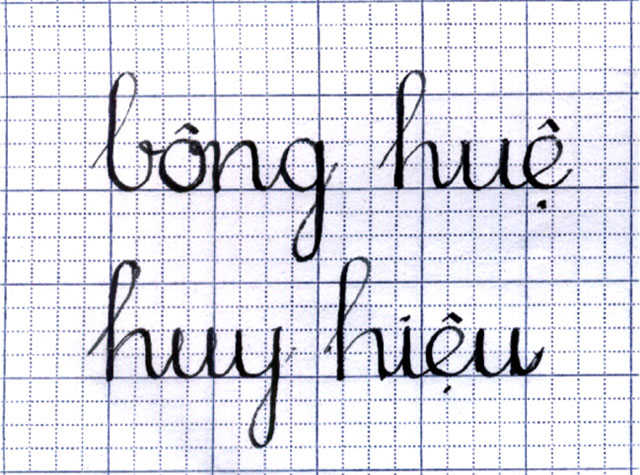 bông huệ
huy hiệu